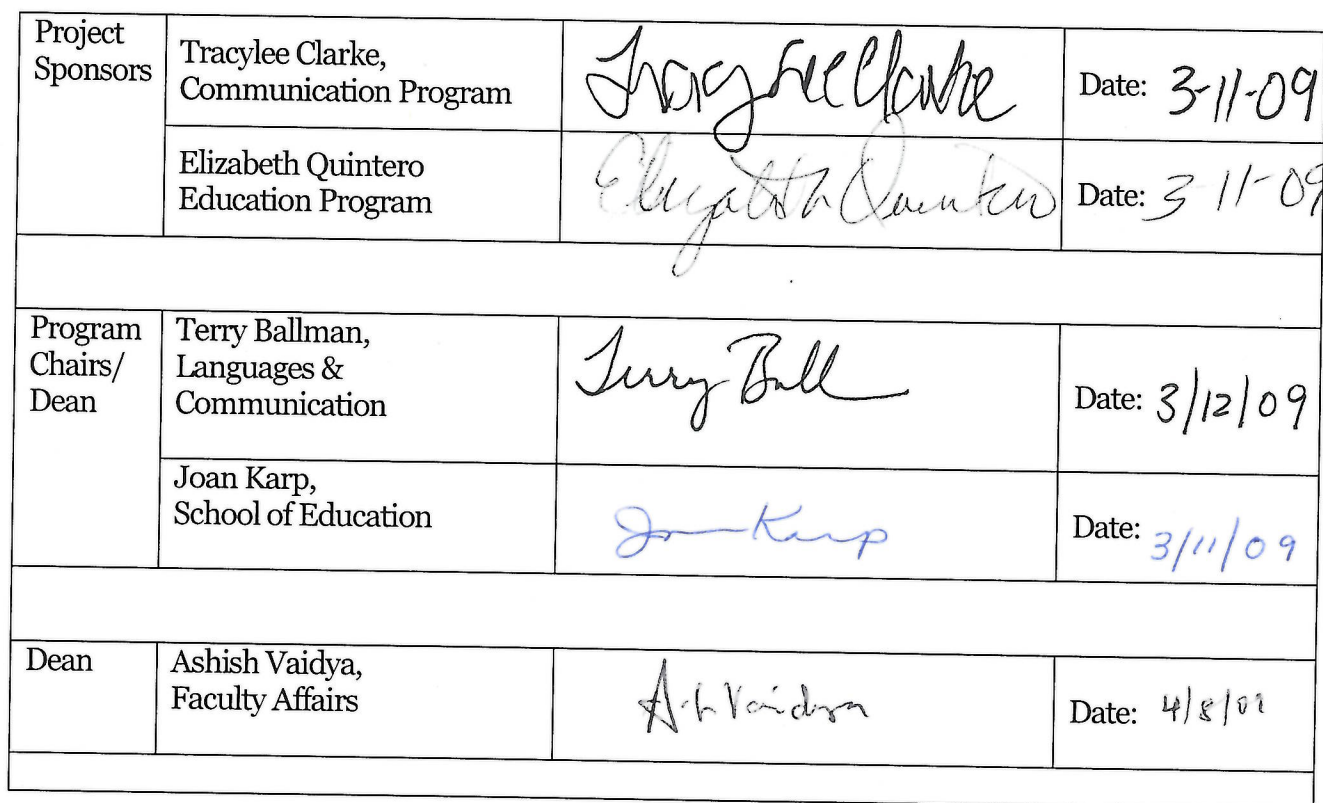 Project
Sponsors
Tracylee Clarke,
Communication Program
Tracylee Clarke
Date: 3-11-09
Elizabeth Quintero
Education Program
Elizabeth Quintero
Date: 3-11-09
Program
Chairs/
Dean
Terry Ballman,
Languages &
Communication
Terry Ball
Date: 3/12/09
Joan Karp,
School of Education
Joan Karp
Date: 3/11/09
Dean
Ashish Vaidya,
Faculty Affairs
Vaidya
Date: 4/8/09